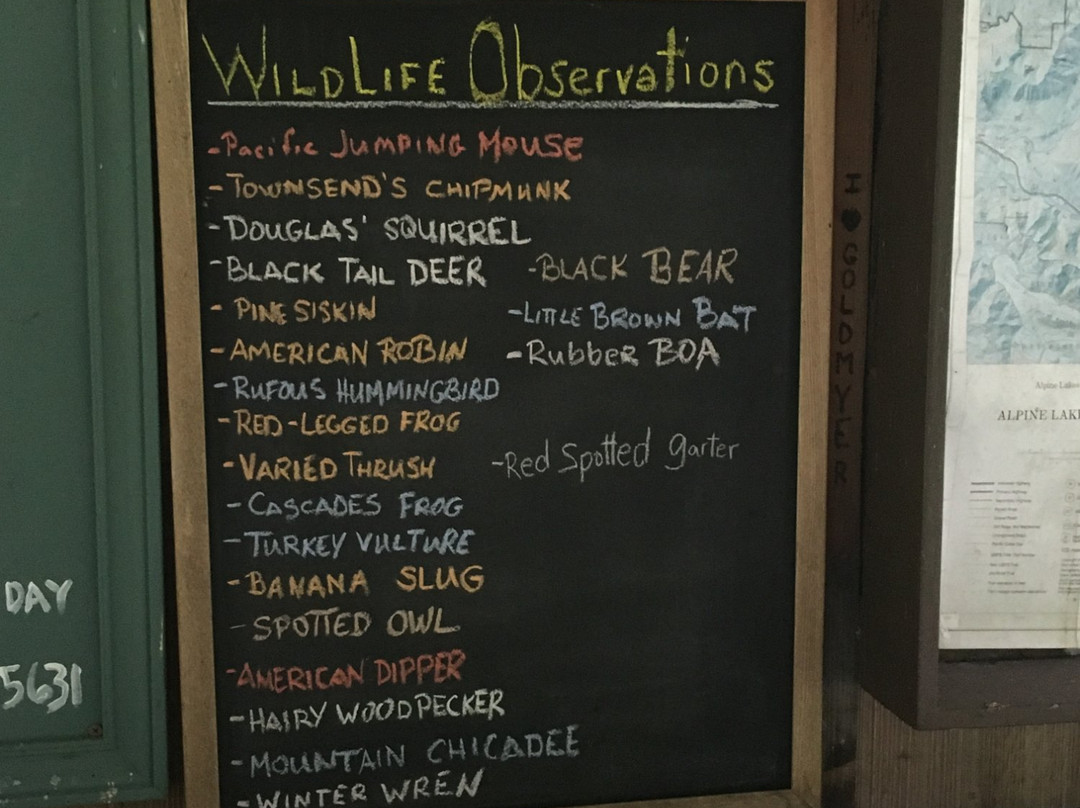 WILDLIFE Observations
-Pacific JUMPING MOUSE
-TOWNSEND'S CHIPMUNK
-DOUGLAS' SQUIRREL
-BLACK TAIL DEER
-PINE SISKIN
-AMERICAN ROBIN
-RUFOUS HUMMINGBIRD
-RED-LEGGED FROG
-VARIED THRUSH
-CASCADES FROG
-TURKEY VULTURE
-BANANA SLUG
-SPOTTED OWL
-AMERICAN DIPPER
-HAIRY WOODPECKER
-MOUNTAIN CHICADEE
-WINTER WREN
-BLACK BEAR
-LITTLE BROWN BAT
-Rubber BOA
-Red Spotted garter
DAY
5631
I ♥ GOLDMYER
Alpine Lakes
ALPINE LAK